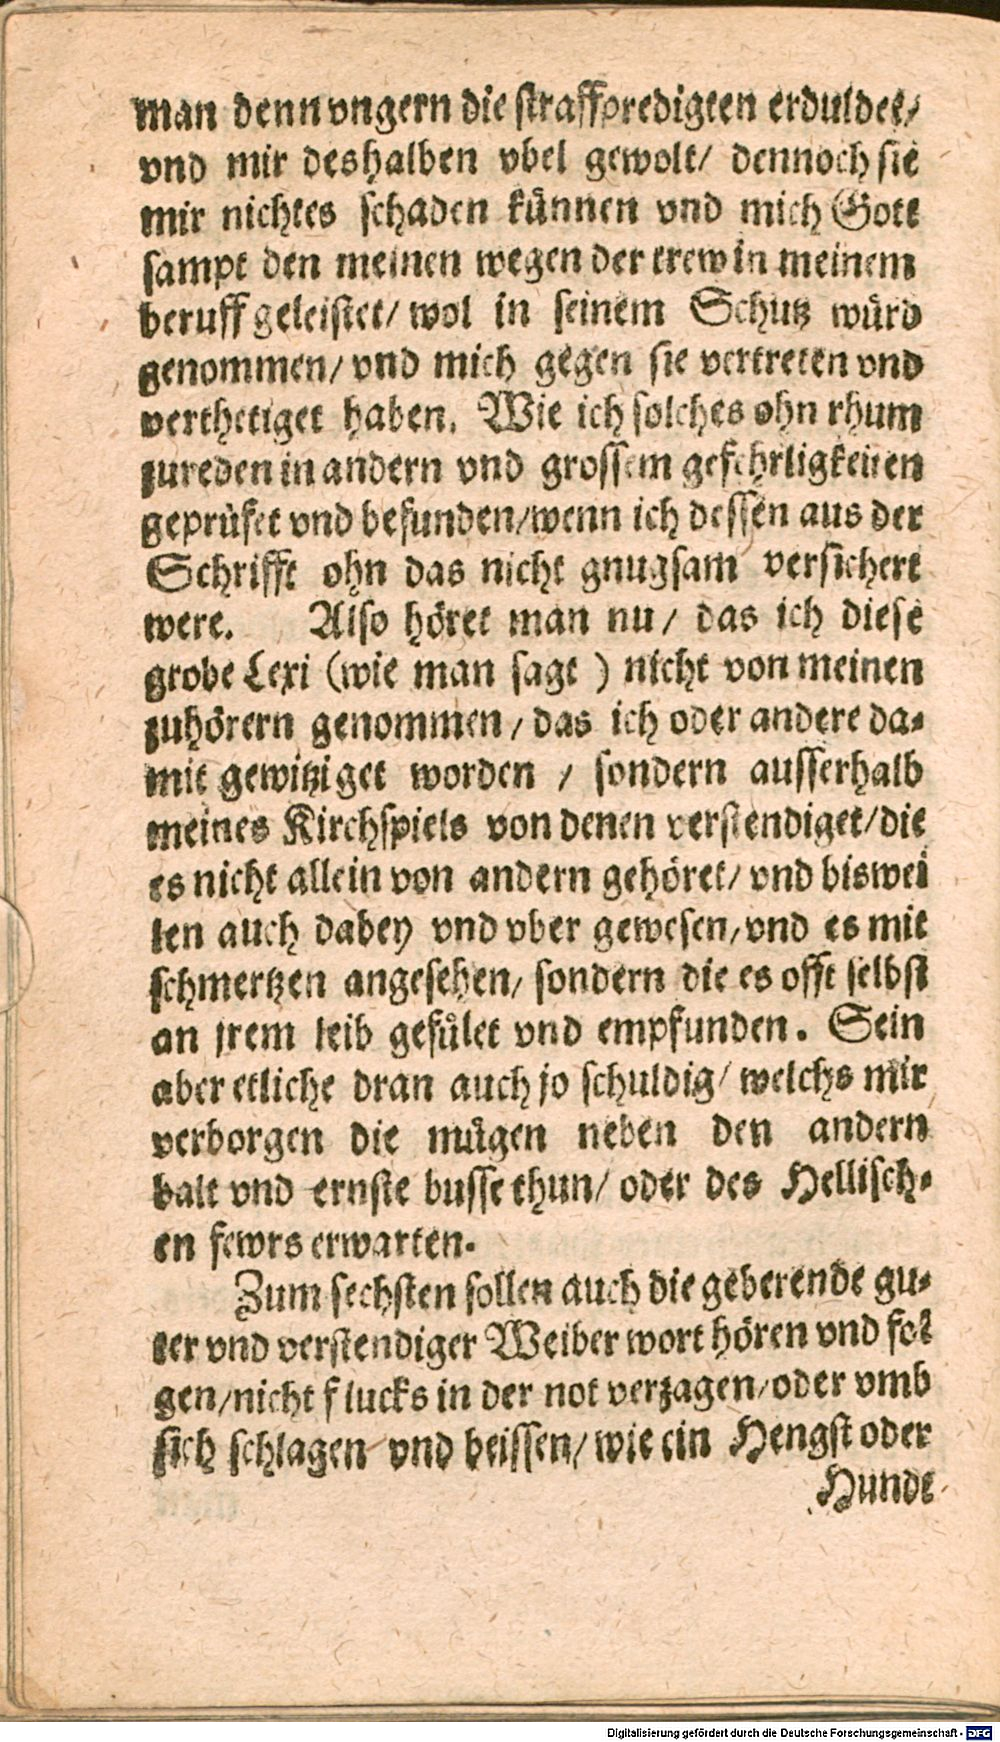 man denn vngern die straffpredigten erduldet/
vnd mir deshalben vbel gewolt/ dennoch sie
mir nichtes schaden künnen vnd mich Gott
sampt den meinen wegen der trew in meinem
beruff geleistet/ wol in seinem Schutz würd
genommen/ vnd mich gegen sie vertreten vnd
verthetiget haben. Wie ich solches ohn rhum
zureden in andern vnd grossem gefehrligkeiten
geprüfet vnd befunden/ wenn ich dessen aus der
Schrifft ohn das nicht gnugsam versichert
were. Also höret man nu/ das ich diese
grobe Lexi (wie man sagt ) nicht von meinen
zuhörern genommen/ das ich oder andere da-
mit gewitziget worden / sondern ausserhalb
meines Kirchspiels von denen verstendiget/ die
es nicht allein von andern gehöret/ vnd biswei
len auch dabey vnd vber gewesen/ vnd es mit
schmertzen angesehen/ sondern die es offt selbst
an jrem leib gefület vnd empfunden. Sein
aber etliche dran auch jo schuldig/ welchs mir
verborgen die mügen neben den andern
balt vnd ernste busse thun/ oder des Hellisch-
en fewrs erwarten.
Zum sechsten sollen auch die geberende gu-
ter vnd verstendiger Weiber wort hören vnd fol
gen/ nicht flucks in der not verzagen/ oder vmb
sich schlagen vnd beissen/ wie ein Hengst oder
Hundt
Digitalisierung gefördert durch die Deutsche Forschungsgemeinschaft - DFG